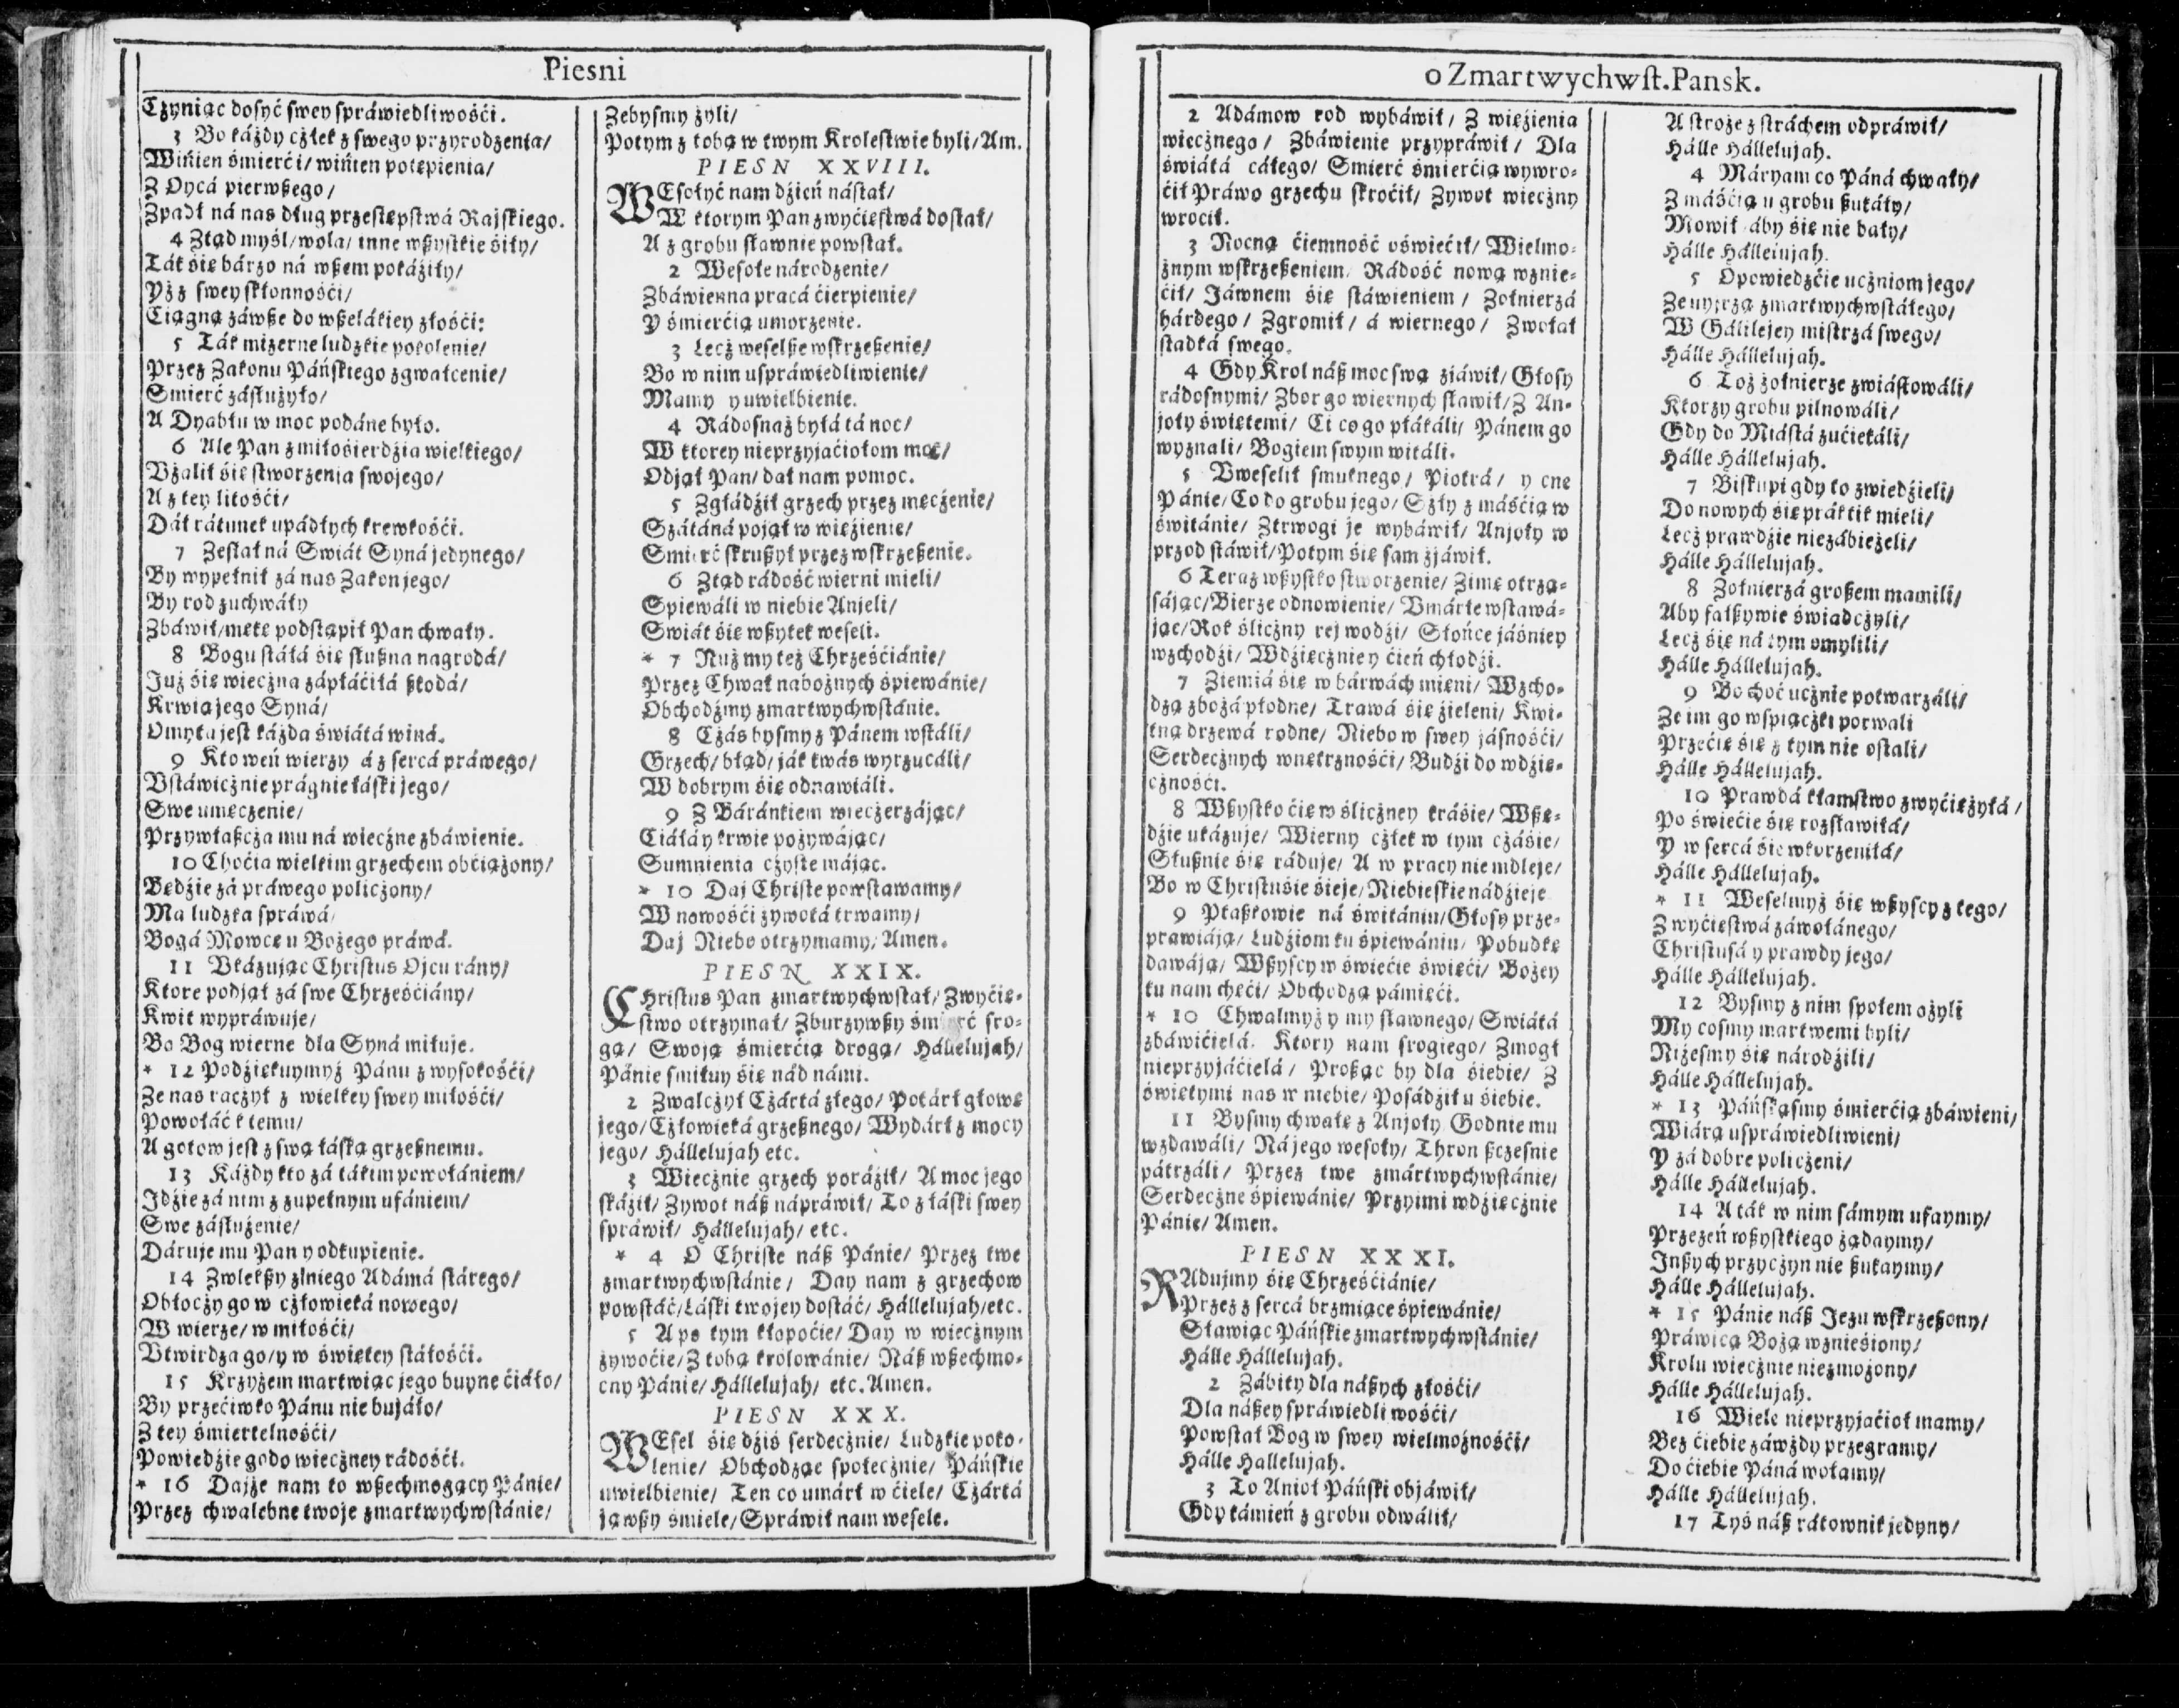 Piesni
Cżyniąc dosyć swey spráwiedliwośći.
3 Bo káżdy cżłek z swego przyrodzenia/
Winien śmierći/ winien potępienia/
Z Oycá pierwßego/
Zpadł ná nas dług przestępstwá Rajskiego.
4 Ztąd myśl/ wola/ inne wßystkie śiły/
Ták się bárzo ná wßem pokáźiły/
Yż z swey skłonnośći/
Ciągną záwße do wßelákiey złośći:
5 Ták mizerne ludzkie pokolenie/
Przez Zakonu Páńskiego zgwałcenie/
Smierć zásłużyło/
A Dyabłu w moc podáne było.
6 Ale Pan z miłośierdźia wielkiego/
Vżalił śię stworzenia swojego/
A z tey litośći/
Dał rátunek upádłych krewkośći.
7 Zesłał ná Swiát Syná jedynego/
By wypełnił zá nas Zakon jego/
By rod zuchwáły
Zbáwił/ mękę podstąpił Pan chwały.
8 Bogu stáłá śię słußna nagrodá/
Już śię wieczna zápłáćiłá ßkodá/
Krwią jego Syná/
Omyta jest káżda świátá winá.
9 Kto weń wierzy á z sercá práwego/
Vstáwicżnie prágnie łáski jego/
Swe umęczenie/
Przywłaßcża mu ná wiecżne zbáwienie.
10 Choćia wielkim grzechem obćiążony/
Będźie zá práwego policżony/
Ma ludzka spráwá/
Bogá Mowcę u Bożego práwá.
11 Vkázując Christus Ojcu rány/
Ktore podjął zá swe Chrześćiány/
Kwit wypráwuje/
Bo Bog wierne dla Syná miłuje.
* 12 Podźiękuymyż Pánu z wysokośći/
Ze nas racżył z wielkey swey miłośći/
Powołáć k temu/
A gotow jest z swą łáską grzeßnemu.
13 Káżdy kto zá tákim powołániem/
Jdźie zá nim z zupełnym ufániem/
Swe zásłużenie/
Dáruje mu Pan y odkupienie.
14 Zwlekßy z niego Adámá stárego/
Obłocży go w cżłowieká nowego/
W wierze/ w miłośći/
Vtwirdza go/ y w świętey stáłośći.
15 Krzyżem martwiąc jego buyne ćiáło/
By przećiwko Pánu nie bujáło/
Z tey śmiertelnośći/
Powiedźie go do wiecżney rádośći.
* 16 Dajże nam to wßechmogący Pánie/
Przez chwalebne twoje zmartwychwstánie/
Zebysmy żyli/
Potym z tobą w twym Krolestwie byli/ Am.
PIESN XXVIII.
WEsołyć nam dźień nástał/
W ktorym Pan zwyćięstwá dostał/
A z grobu sławnie powstał.
2 Wesołe národzenie/
Zbáwienna pracá ćierpienie/
Y śmierćią umorzenie.
3 Lecż weselße wskrzeßenie/
Bo w nim uspráwiedliwienie/
Mamy y uwielbienie.
4 Rádosnaż byłá tá noc/
W ktorey nieprzyjaćiołom moc/
Odjął Pan/ dał nam pomoc.
5 Zgłádźił grzech przez męcżenie/
Szátáná pojął w więźienie/
Smierć skrußył przez wskrzeßenie.
6 Ztąd rádość wierni mieli/
Spiewáli w niebie Anjeli/
Swiát się wßytek weseli.
* 7 Nuż my też Chrześćiánie/
Przez Chwał nabożnych śpiewánie/
Obchodźmy zmartwychwstánie.
8 Cżás bysmy z Pánem wstáli/
Grzech/ błąd/ ják kwás wyrzucáli/
W dobrym śię odnawiáli.
9 Z Báránkiem wiecżerzájąc/
Ciáłá y krwie pożywájąc/
Sumnienia cżyste májąc.
* 10 Daj Christe powstawamy/
W nowośći żywotá trwamy/
Daj Niebo otrzymamy/ Amen.
PIESN XXIX.
CHristus Pan zmartwychwstał/ Zwyćię-
stwo otrzymał/ Zburzywßy śmierć sro-
gą/ Swoją śmierćią drogą/ Hállelujah/
Pánie smiłuy śię nád námi.
2 Zwalcżył Cżártá złego/ Potárł głowę
jego/ Cżłowieká grzeßnego/ Wydárł z mocy
jego/ Hállelujah etc.
3 Wiecżnie grzech poráźił/ A moc jego
skáźił/ Zywot náß nápráwił/ To z łáski swey
spráwił/ Hállelujah/ etc.
* 4 O Christe náß Pánie/ Przez twe
zmartwychwstánie/ Day nam z grzechow
powstáć/ Łáski twojey dostáć/ Hállelujah/ etc.
5 A po tym kłopoćie/ Day w wiecżnym
żywoćie/ Z tobą krolowánie/ Náß wßechmo-
cny Pánie/ Hállelujah/ etc. Amen.
PIESN XXX.
WEsel śię dźiś serdecżnie/ Ludzkie poko-
lenie/ Obchodząc społecżnie/ Páńskie
uwielbienie/ Ten co umárł w ćiele/ Cżártá
jąwßy śmiele/ Spráwił nam wesele.
o Zmartwychwst. Pansk.
2 Adámow rod wybáwił/ Z więźienia
wiecżnego/ Zbáwienie przypráwił/ Dla
świátá cáłego/ Smierć śmierćią wywro-
ćił Práwo grzechu skroćił/ Zywot wiecżny
wrocił.
3 Nocną ćiemność oświećił/ Wielmo-
żnym wskrzeßeniem/ Rádość nową wznie-
ćił/ Jáwnem śię stáwieniem/ Zołnierzá
hárdego/ Zgromił/ á wiernego/ Zwołał
stadká swego.
4 Gdy Krol náß moc swą zjáwił/ Głosy
rádosnymi/ Zbor go wiernych sławił/ Z An-
joły świętemi/ Ci co go płákáli/ Pánem go
wyznali/ Bogiem swym witáli.
5 Vweselił smutnego/ Piotrá/ y cne
Pánie/ Co do grobu jego/ Szły z máśćią w
świtánie/ Z trwogi je wybáwił/ Anjoły w
przod stáwił/ Potym śię sam zjáwił.
6 Teraz wßystko stworzenie/ Zimę otrzą-
sájąc/ Bierze odnowienie/ Vmárłe wstawá-
jąc/ Rok ślicżny rej wodźi/ Słońce jáśniey
wzchodźi/ Wdźięcżniey ćień chłodźi.
7 Ziemiá śię w bárwách mieni/ Wzcho-
dzą zbożá płodne/ Trawá śię źieleni/ Kwi-
tną drzewá rodne/ Niebo w swey jásnośći/
Serdecżnych wnętrznośći/ Budźi do wdźię-
cżnośći.
8 Wßystko ćię w ślicżney kráśie/ Wßę-
dźie ukázuje/ Wierny cżłek w tym cżáśie/
Słußnie śię ráduje/ A w pracy nie mdleje/
Bo w Christuśie śieje/ Niebieskie nádźieje
9 Ptaßkowie ná świtániu/ Głosy prze-
prawiája/ Ludźiom ku śpiewániu/ Pobudkę
dawája/ Wßyscy w świećie święći/ Bożey
ku nam chęći/ Obchodzą pámięći.
* 10 Chwalmyż y my sławnego/ Swiátá
zbáwićielá. Ktory nam srogiego/ Zmogł
nieprzyjáćielá/ Proßąc by dla śiebie/ Z
świętymi nas w niebie/ Posádźił u śiebie.
11 Bysmy chwałę z Anjoły Godnie mu
wzdawáli/ Ná jego wesoły/ Thron ßczesnie
pátrzáli/ Przez twe zmártwychwstánie/
Serdecżne śpiewánie/ Przyimi wdźięcżnie
Pánie/ Amen.
PIESN XXXI.
RAdujmy śię Chrześćiánie/
Przez z sercá brzmiące śpiewánie/
Sławiąc Páńskie zmartwychwstánie/
Hálle Hállelujah.
2 Zábity dla náßych złośći/
Dla náßey spráwiedliwośći/
Powstał Bog w swey wielmożnośći/
Hálle Hallelujah.
3 To Anioł Páński objáwił/
Gdy kámień z grobu odwálił/
A stroże z stráchem odpráwił/
Hálle Hállelujah.
4 Máryam co Páná chwały/
Z máśćią u grobu ßukáły/
Mowił áby śię nie bały/
Hálle Hállelujah.
5 Opowiedzćie ucżniom jego/
Ze uyrzą zmartwychwstáłego/
W Gálilejey mistrzá swego/
Hálle Hállelujah.
6 Toż żołnierze zwiástowáli/
Ktorzy grobu pilnowáli/
Gdy do Miástá zućiekáli/
Hálle Hállelujah.
7 Biskupi gdy to zwiedźieli/
Do nowych śię práktik mieli/
Lecż prawdźie nie zábieżeli/
Hálle Hállelujah.
8 Zołnierzá großem mamili/
Aby fałßywie świadcżyli/
Lecż śię ná tym omylili/
Hálle Hállelujah.
9 Bo choć ucżnie potwarzáli/
Ze im go wspiącżki porwali
Przećię śię z tym nie ostali/
Hálle Hállelujah.
10 Prawdá kłamstwo zwyćiężyłá/
Po świećie śię rozsławiłá/
Y w sercá śię wkorzeniłá/
Hálle Hállelujah.
* 11 Weselmyż śię wßyscy z tego/
Zwyćięstwá záwołánego/
Christusá y prawdy jego/
Hálle Hállelujah.
12 Bysmy z nim społem ożyli
My cosmy martwemi byli/
Niżesmy śię národźili/
Hálle Hállelujah.
* 13 Páńskąsmy śmierćią zbáwieni/
Wiárą uspráwiedliwieni/
Y zá dobre policżeni/
Hálle Hállelujah.
14 A ták w nim sámym ufaymy/
Przezeń wßystkiego żądaymy/
Jnßych przycżyn nie ßukaymy/
Hálle Hállelujah.
* 15 Pánie náß Jezu wskrzeßony/
Práwicą Bożą wznieśiony/
Krolu wiecżnie niezmożony/
Hálle Hállelujah.
16 Wiele nieprzyjaćioł mamy/
Bez ćiebie záwżdy przegramy/
Do ćiebie Páná wołamy/
Hálle Hállelujah.
17 Tyś náß rátownik jedyny/